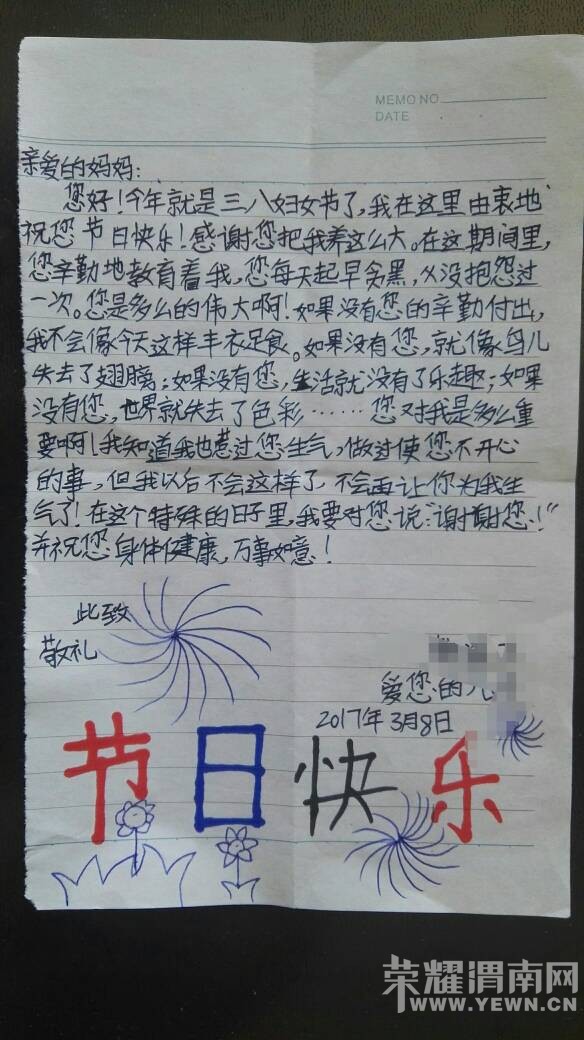 MEMO NO
DATE
亲爱的妈妈：
您好！今年就是三八妇女节了，我在这里由衷地
祝您节日快乐！感谢您把我养这么大。在这期间里，
您辛勤地教育着我，您每天起早贪黑，从没抱怨过
一次。您是多么的伟大啊！如果没有您的辛勤付出，
我不会像今天这样丰衣足食。如果没有您，就像鸟儿
失去了翅膀；如果没有您，生活就没有了乐趣；如果
没有您，世界就失去了色彩……您对我是多么重
要啊！我知道我也惹过您生气，做过使您不开心
的事，但我以后不会这样了，不会再让你为我生
气了！在这个特殊的日子里，我要对您说：“谢谢您！”
并祝您身体健康，万事如意！
此致
敬礼
爱您的儿
2017年3月8日
节日快乐
荣耀渭南网
WWW.YEWN.CN